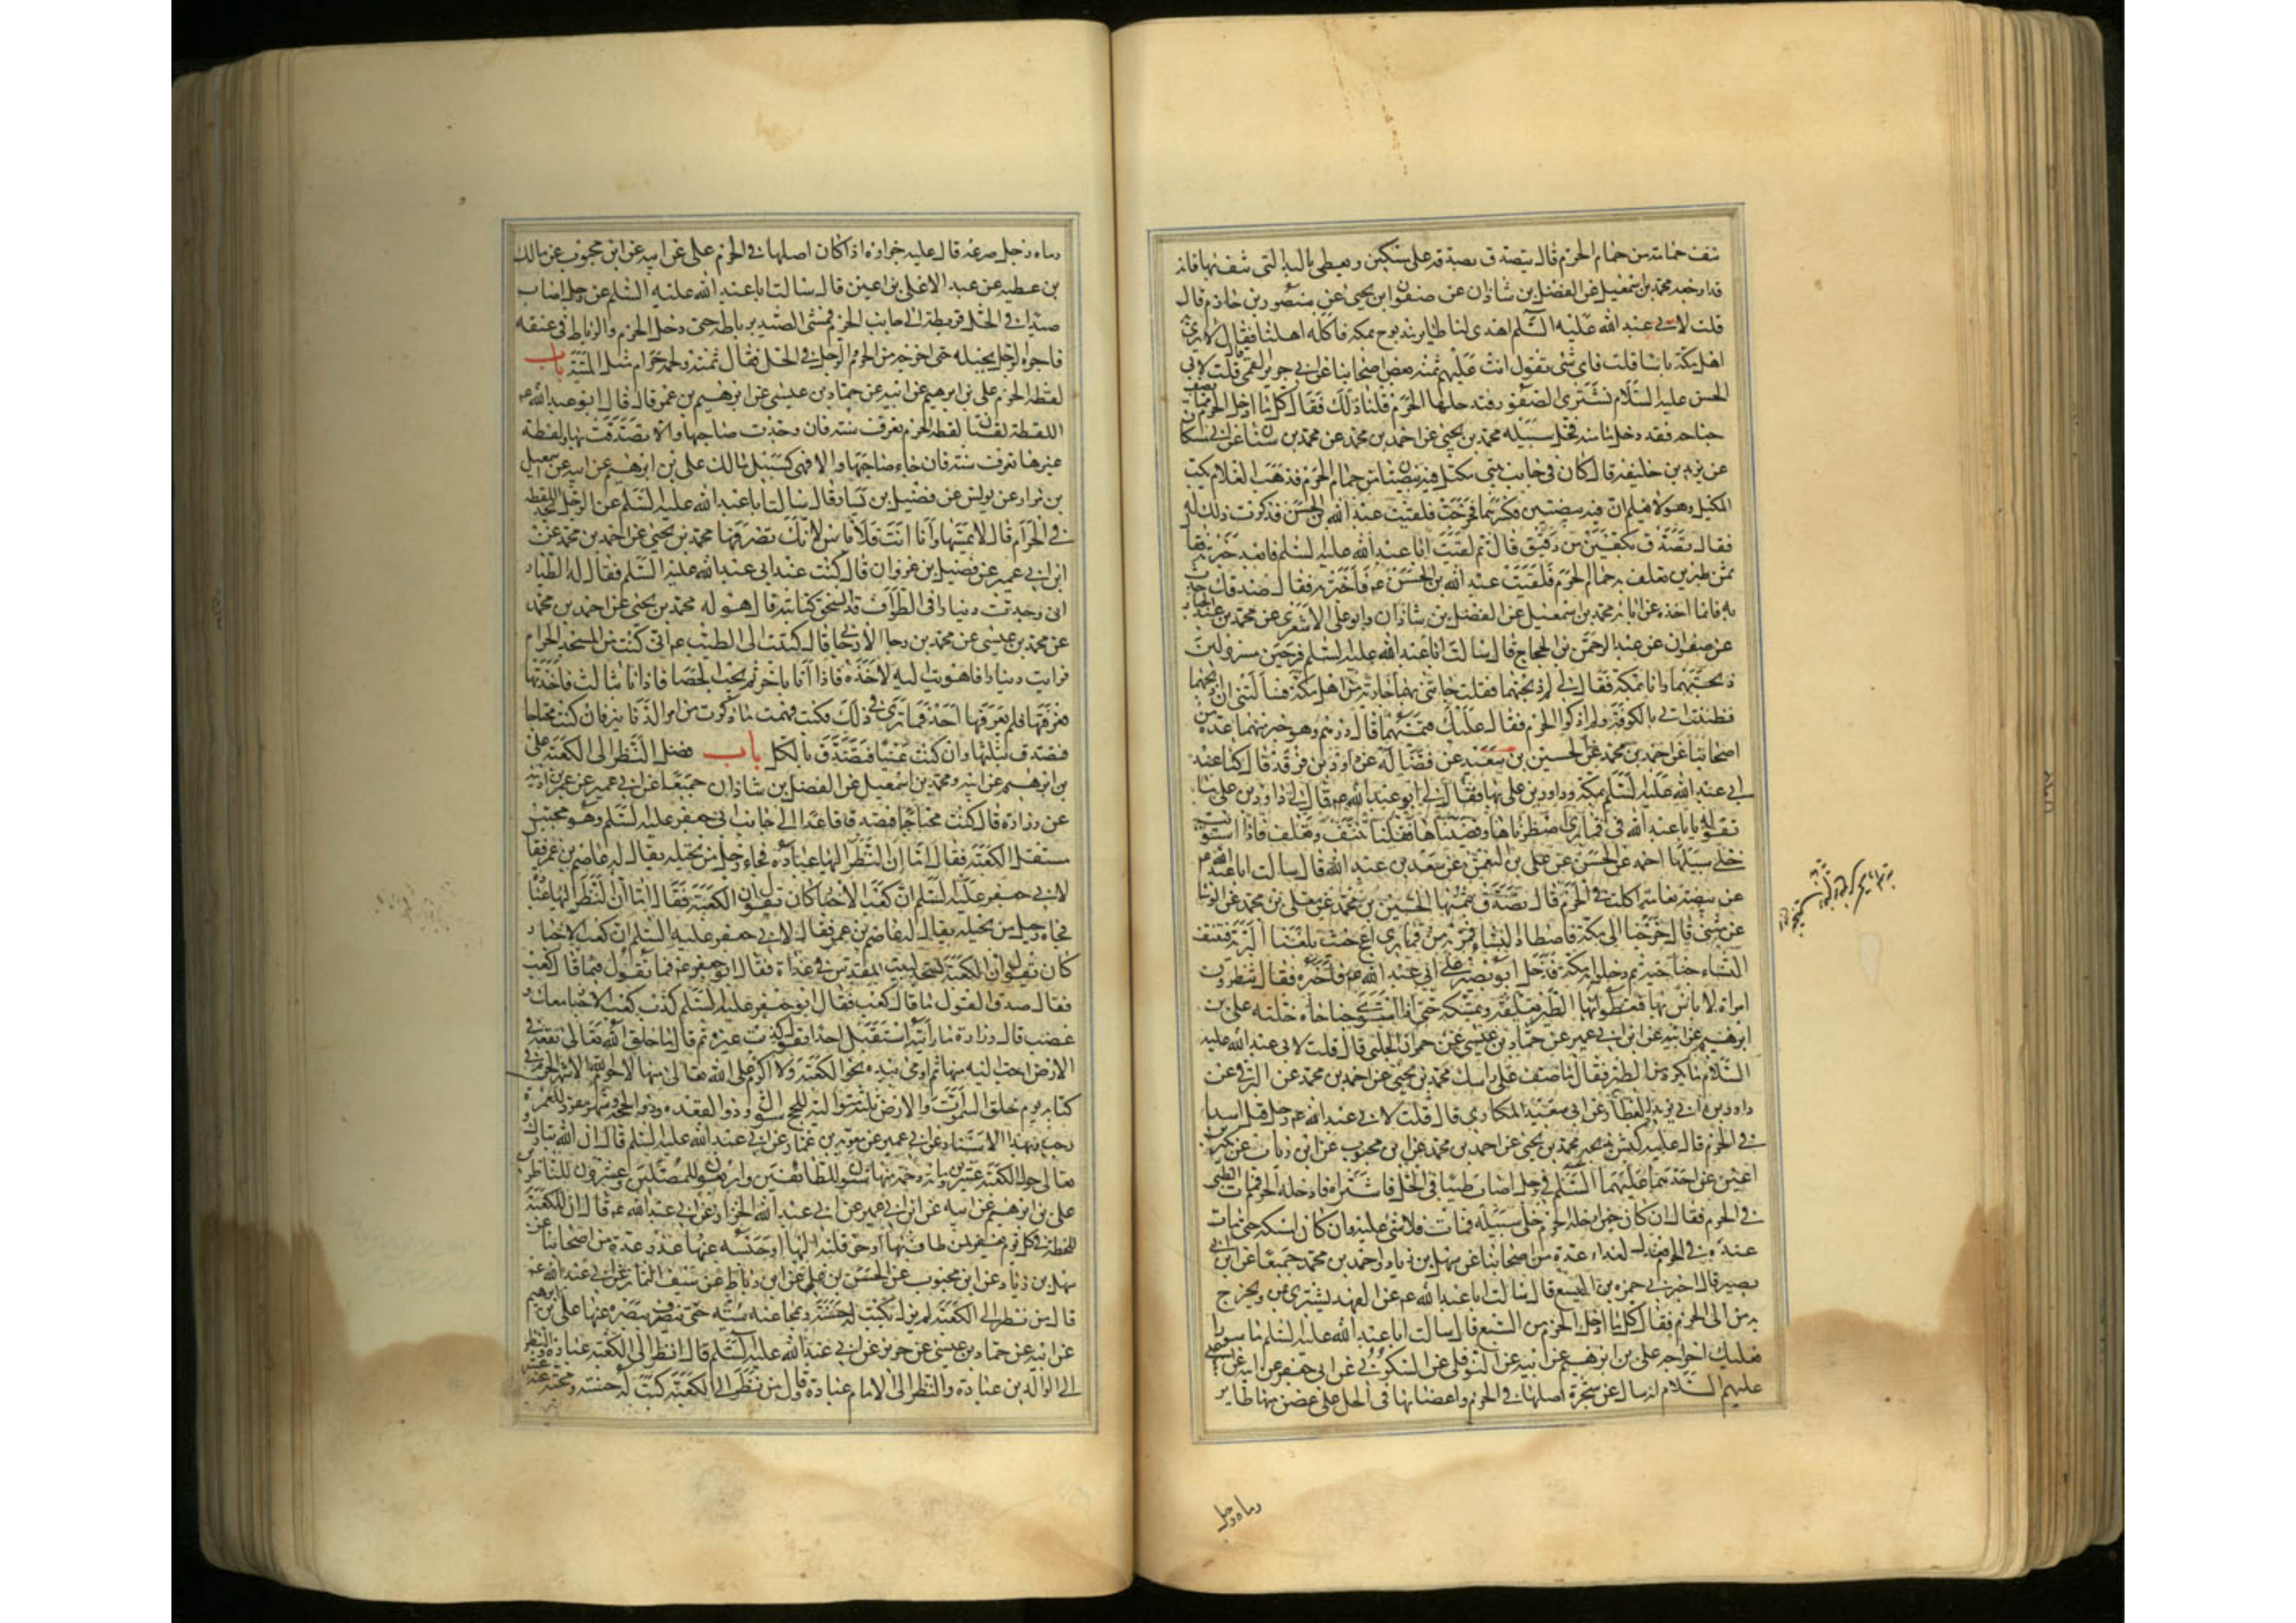 نتف حمامة من حمام الحرم قال يتصدق بصدقة على مسكين ويعطي باليد التي نتف بها فانه
قد اوجعه محمد بن اسمعيل عن الفضل بن شاذان عن صفوان بن يحيى عن منصور بن حازم قال
قلت لابي عبد الله عليه السلام اهدي لنا طاير مذبوح بمكة فاكله اهلنا فقال لا يرى به
اهل مكة باسا قلت فاي شي تقول انت قال عليهم ثمنه بعض اصحابنا عن ابي جرير القمي قلت لابي
الحسن عليه السلام نشتري الصقور فندخلها الحرم فلنا ذلك فقال كل ما ادخل الحرم من الطير مما يصف
جناحه فقد دخل مامنه فخل سبيله محمد بن يحيى عن احمد بن محمد عن محمد بن سنان عن ابن مسكان
عن يزيد بن خليفة قال كان في جانب بيتي مكتل فيه بيضتان من حمام الحرم فذهب الغلام يكب
المكتل وهو لا يعلم ان فيه بيضتين فكسرهما فخرجت فلقيت عبد الله بن الحسن فذكرت ذلك له
فقال تصدق بكفين من دقيق قال ثم لقيت ابا عبد الله عليه السلم فاخبرته فقال
ثمن طيرين تعلف به حمام الحرم فلقيت عبد الله بن الحسن فاخبرته فقال صدقك حدث
به فانما اخذه عن ابائه محمد بن اسمعيل عن الفضل بن شاذان وابو علي الاشعري عن محمد بن عبد الجبار
عن صفوان عن عبد الرحمن بن الحجاج قال سالت ابا عبد الله عليه السلم عن فرخين مسرولين
ذبحتهما وانا بمكة فقال لي لم ذبحتهما فقلت جاءتني بهما جارية من اهل مكة فسالتني ان اذبحهما
فظننت اني بالكوفة ولم اذكر الحرم فقال عليك قيمتهما قلت كم قيمتهما قال درهم وهو خير منهما عدة من
اصحابنا عن احمد بن محمد عن الحسين بن سعيد عن فضالة عن داود بن فرقد قال كنا عند
ابي عبد الله عليه السلم بمكة وداود بن علي بها فقال لي ابو عبد الله قال لي داود بن علي ما
تقول يا ابا عبد الله في قماري اصطدناها وقصيناها فقلت تنتف وتعلف فاذا استوت
خلي سبيلها احمد عن الحسن عن علي بن النعمن عن سعيد بن عبد الله قال سالت ابا عبد الله
عن بيضة نعامة اكلت في الحرم قال تصدق بثمنها الحسين بن محمد عن معلى بن محمد عن الوشا
عن مثنى قال خرجنا الى مكة فاصطاد النساء قمرية من قماري امج حيث بلغنا البريد فنتف
النساء جناحيه ثم دخلوا به مكة فدخل ابو بصير على ابي عبد الله فاخبره فقال تنظرون
امراة لا باس بها فتعطونها الطير تعلفه وتمسكه حتى اذا استوى جناحاه خلته علي بن
ابرهيم عن ابيه عن ابن ابي عمير عن حماد بن عيسى عن عمران الحلبي قال قلت لابي عبد الله عليه
السلام ما يكره من الطير فقال ما صف على راسك محمد بن يحيى عن احمد بن محمد عن البرقي عن
داود بن ابي يزيد العطار عن ابي سعيد المكاري قال قلت لابي عبد الله رجل قتل اسدا
في الحرم قال عليه كبش يذبحه محمد بن يحيى عن احمد بن محمد عن ابن محبوب عن ابن رئاب عن بكير بن
اعين عن احدهما عليهما السلم في رجل اصاب ظبيا في الحل فاشتراه فادخله الحرم فمات الظبي
في الحرم فقال ان كان حين ادخله الحرم خلى سبيله فمات فلا شي عليه وان كان امسكه حتى مات
عنده في الحرم فعليه الفداء عدة من اصحابنا عن سهل بن زياد واحمد بن محمد جميعا عن ابن ابي
نصير قال اخبرني حمزة بن اليسع قال سالت ابا عبد الله عن الفهد يشترى بمنى ويخرج
به من الى الحرم فقال كل ما ادخل الحرم من السبع قال سالت ابا عبد الله عليه السلم ماسورا
فعليك اخراجه علي بن ابرهيم عن ابيه عن النوفلي عن السكوني عن ابي جعفر عن ابيه عن علي
عليهم السلام انه سال عن شجرة اصلها في الحرم واعضانها في الحل على غصن منها طاير
رماه رجل
رماه رجل فصرعه قال عليه جزاوه اذا كان اصلها في الحرم علي عن ابيه عن ابن محبوب عن مالك
بن عطية عن عبد الاعلى بن اعين قال سالت ابا عبد الله عليه السلم عن رجل اصاب
صيدا في الحل فربطه الى جانب الحرم فمشى الصيد برباطه حتى دخل الحرم والرباط في عنقه
فاجره الرجل بحبله حتى اخرجه من الحرم والرجل في الحل فقال ثمنه ولحمه حرام مثل الميتة باب
لقطة الحرم علي بن ابرهيم عن ابيه عن حماد بن عيسى عن ابرهيم بن عمر قال قال ابو عبد الله
اللقطة لقطتان لقطة الحرم تعرف سنة فان وجدت صاحبها والا تصدقت بها ولقطة
غيرها تعرف سنة فان جاء صاحبها والا فهي كسبيل مالك علي بن ابرهيم عن ابيه عن اسمعيل
بن مرار عن يونس عن فضيل بن يسار قال سالت ابا عبد الله عليه السلم عن الرجل يجد اللقطة
في الحرم قال لا يمسها واما انت فلا باس لانك تعرفها محمد بن يحيى عن احمد بن محمد عن
ابن ابي عمير عن فضيل بن غزوان قال كنت عند ابي عبد الله عليه السلم فقال له الطيار
اني وجدت دينارا في الطواف قد انسحق كتابته قال هو له محمد بن يحيى عن احمد بن محمد
عن محمد بن عيسى عن محمد بن رجا الارجاني قال كتبت الى الطيب اني كنت في المسجد الحرام
فرايت دينارا فاهويت اليه لاخذه فاذا انا باخر ثم بحثت الحصا فاذا انا بثالث فاخذتها
فعرفتها فلم يعرفها احد فما ترى في ذلك فكتب فهمت ما ذكرت من امر الدنانير فان كنت محتاجا
فتصدق بثلثها وان كنت غنيا فتصدق بالكل باب فضل النظر الى الكعبة علي
بن ابرهيم عن ابيه ومحمد بن اسمعيل عن الفضل بن شاذان جميعا عن ابن ابي عمير عن عمر بن اذينة
عن زرارة قال كنت قاعدا الى جانب ابي جعفر عليه السلم وهو محتبي
مستقبل الكعبة فقال اما ان النظر اليها عبادة فجاءه رجل من بجيلة يقال له عاصم بن عمر فقال
لابي جعفر عليه السلم ان كعب الاحبار كان يقول ان الكعبة فقال اما ان النظر اليها عبادة
فجاه رجل من بجيلة يقال له عاصم بن عمر فقال لابي جعفر عليه السلم ان كعب الاحبار
كان يقول ان الكعبة تسجد لبيت المقدس في كل غداة فقال ابو جعفر فما تقول فيما قال كعب
فقال صدق القول ما قال كعب فقال ابو جعفر عليه السلم كذبت وكذب كعب الاحبار معك و
غضب قال زرارة ما رايته استقبل احدا بقول كذبت غيره ثم قال ما خلق الله تعالى بقعة في
الارض احب اليه منها ثم اومى بيده نحو الكعبة ولا اكرم على الله تعالى منها لها حرم الله الاشهر الحرم في
كتابه يوم خلق السموات والارض ثلثة متوالية للحج شوال وذو القعدة وذو الحجة وشهر مفرد للعمرة
رجب وبهذا الاسناد عن ابن ابي عمير عن معوية بن عمار عن ابي عبد الله عليه السلم قال ان الله تبارك
وتعالى حول الكعبة عشرين وماية رحمة منها ستون للطائفين واربعون للمصلين وعشرون للناظرين
علي بن ابرهيم عن ابيه عن ابن ابي عمير عن ابي عبد الله الخزاز عن ابي عبد الله قال ان للكعبة
للحظة في كل يوم يغفر لمن طاف بها او حن قلبه اليها او حبسه عنها عذر عدة من اصحابنا عن
سهل بن زياد عن ابن محبوب عن الحسن بن علي عن ابن رباط عن سيف التمار عن ابي عبد الله
قال من نظر الى الكعبة لم يزل تكتب له حسنة وتمحا عنه سيئة حتى ينصرف ببصره عنها علي بن ابرهيم
عن ابيه عن حماد بن عيسى عن حريز عن ابي عبد الله عليه السلم قال النظر الى الكعبة عبادة والنظر
الى الوالدين عبادة والنظر الى الامام عبادة وقال من نظر الى الكعبة كتبت له حسنة ومحيت عنه عشر